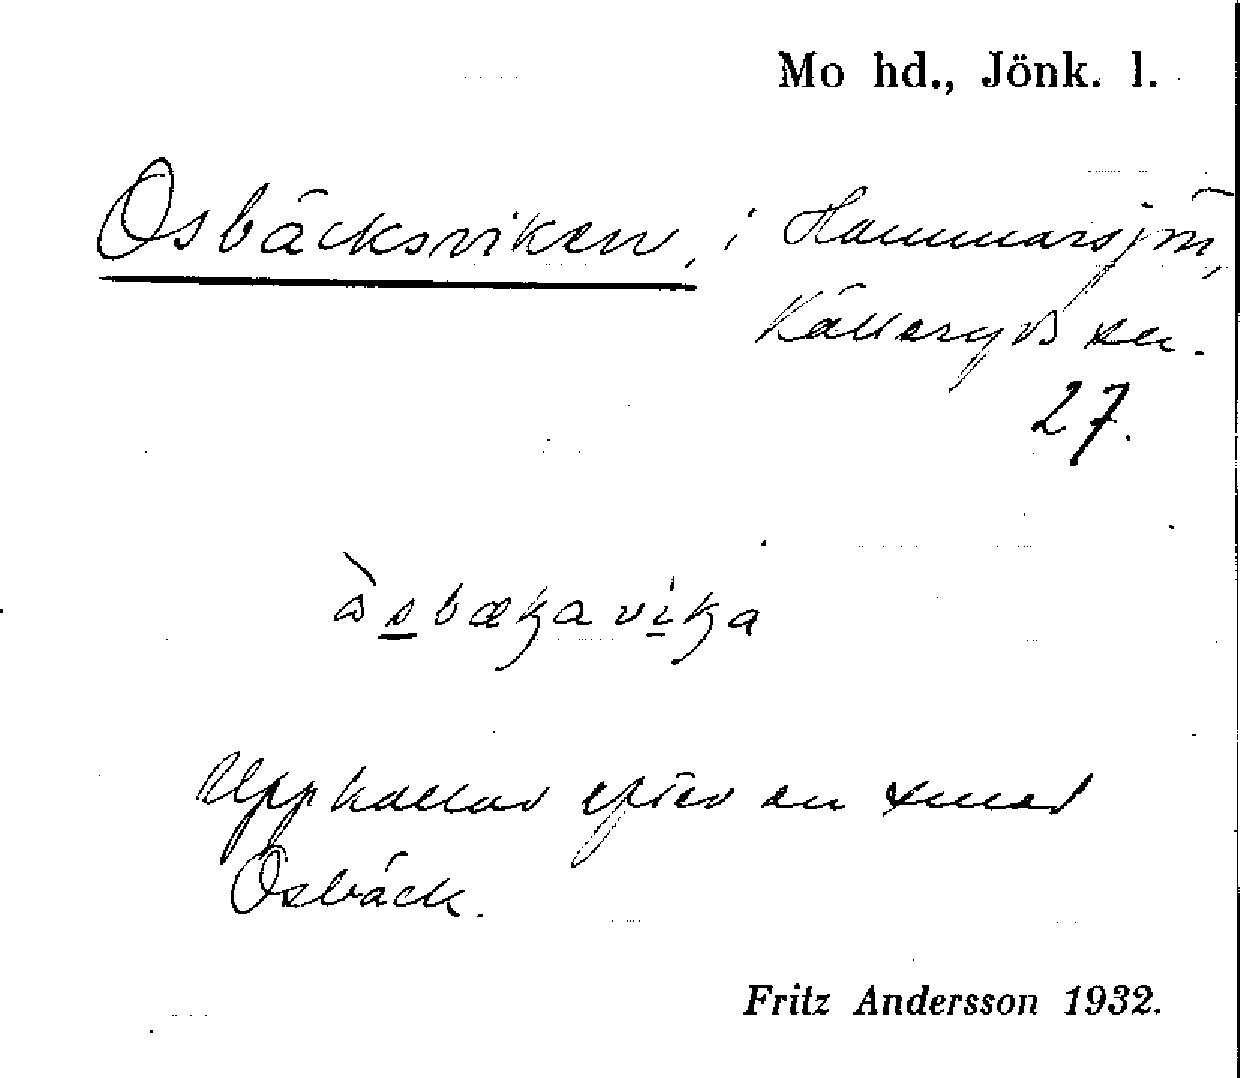 Mo hd., Jönk. l.
Osbäcksviken, i Hammarsjön,
Källeryds sn.
27.
àsbækavika
Uppkallad efter en smed
Osbäck.
Fritz Andersson 1932.